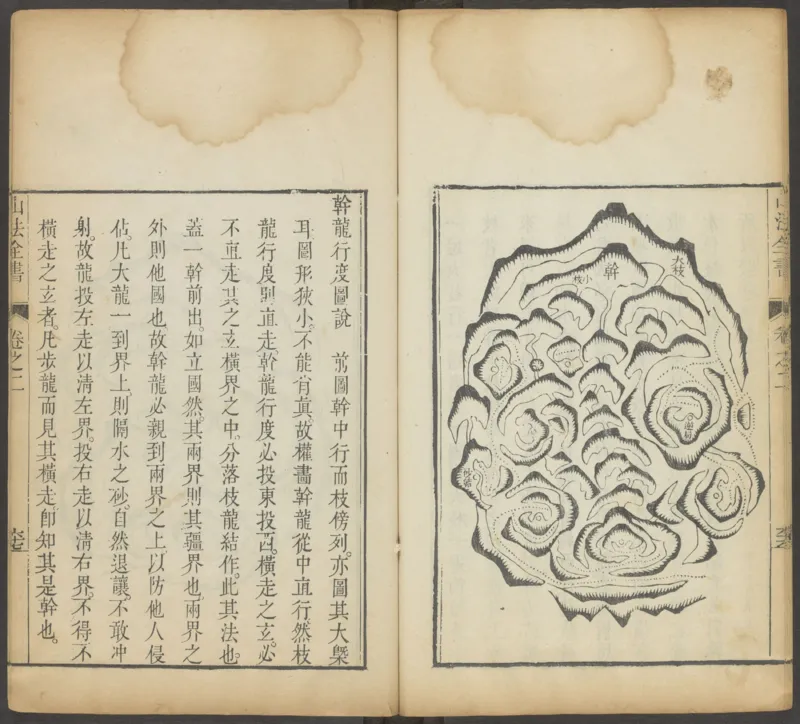 大枝
幹
小枝
山法全書
卷之二
幹龍行度圖說　前圖幹中行而枝傍列。亦圖其大槩
耳圖形狹小。不能肖真。故權畵幹龍從中直行。然枝
龍行度則直走。幹龍行度必投東投西。橫走之玄。必
不直走其之玄橫界之中。分落枝龍結作。此其法也
蓋一幹前出。如立國然。其兩界則其疆界也。兩界之
外則他國也故幹龍必親到兩界之上以防他人侵
佔。凡大龍一到界上。則隔水之砂。自然退讓。不敢冲
射。故龍投左走以清左界。投右走以清右界。不得不
橫走之玄者。凡步龍而見其橫走。卽知其是幹也。
山法全書
卷之二